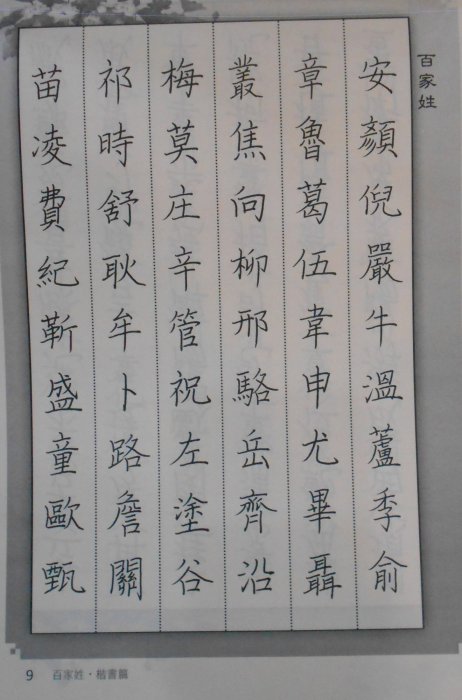 百家姓
安顏倪嚴牛溫蘆季俞
章魯葛伍韋申尤畢聶
叢焦向柳邢駱岳齊沿
梅莫庄辛管祝左塗谷
祁時舒耿牟卜路詹關
苗凌費紀靳盛童歐甄
9 百家姓·楷書篇